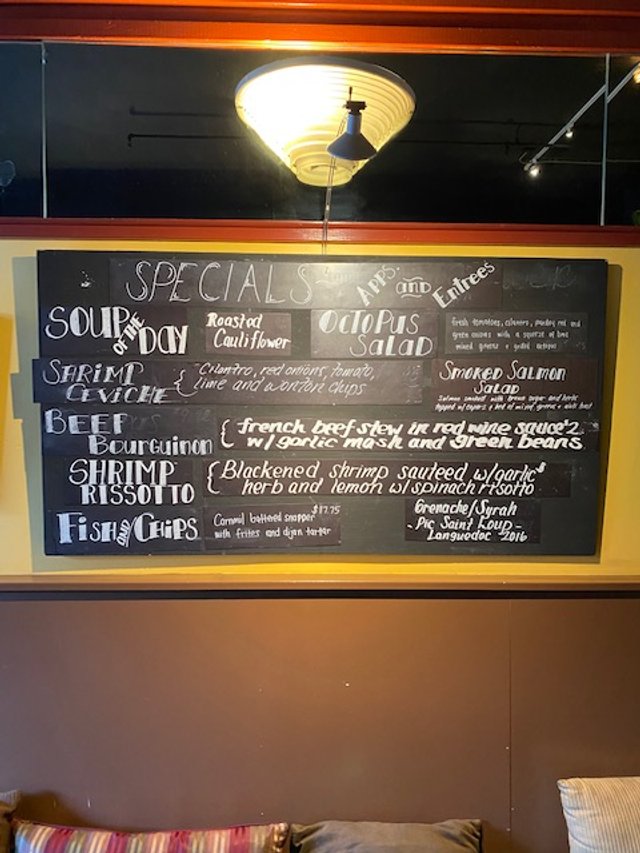 SPECIALS Apps and Entrees
SOUP OF THE DAY
Roasted
Cauliflower
OCTOPUS
SALAD
fresh tomatoes, cilantro, parsley red and
green onions with a squeeze of lime
mixed greens + grilled octopus
SHRIMP
CEVICHE
Cilantro, red onions, tomato,
lime and wonton chips
SMOKED SALMON
SALAD
Salmon smoked with brown sugar and herbs
topped w/ capers + bed of mixed greens +
BEEF
BOURGUINON
french beef stew in red wine sauce
w/ garlic mash and green beans
SHRIMP
RISSOTTO
Blackened shrimp sauteed w/garlic
herb and lemon w/ spinach risotto
FISH AND CHIPS
battered snapper $17.75
with frites and dijon tartar
Grenache/Syrah
- Pic Saint Loup -
Languedoc 2016